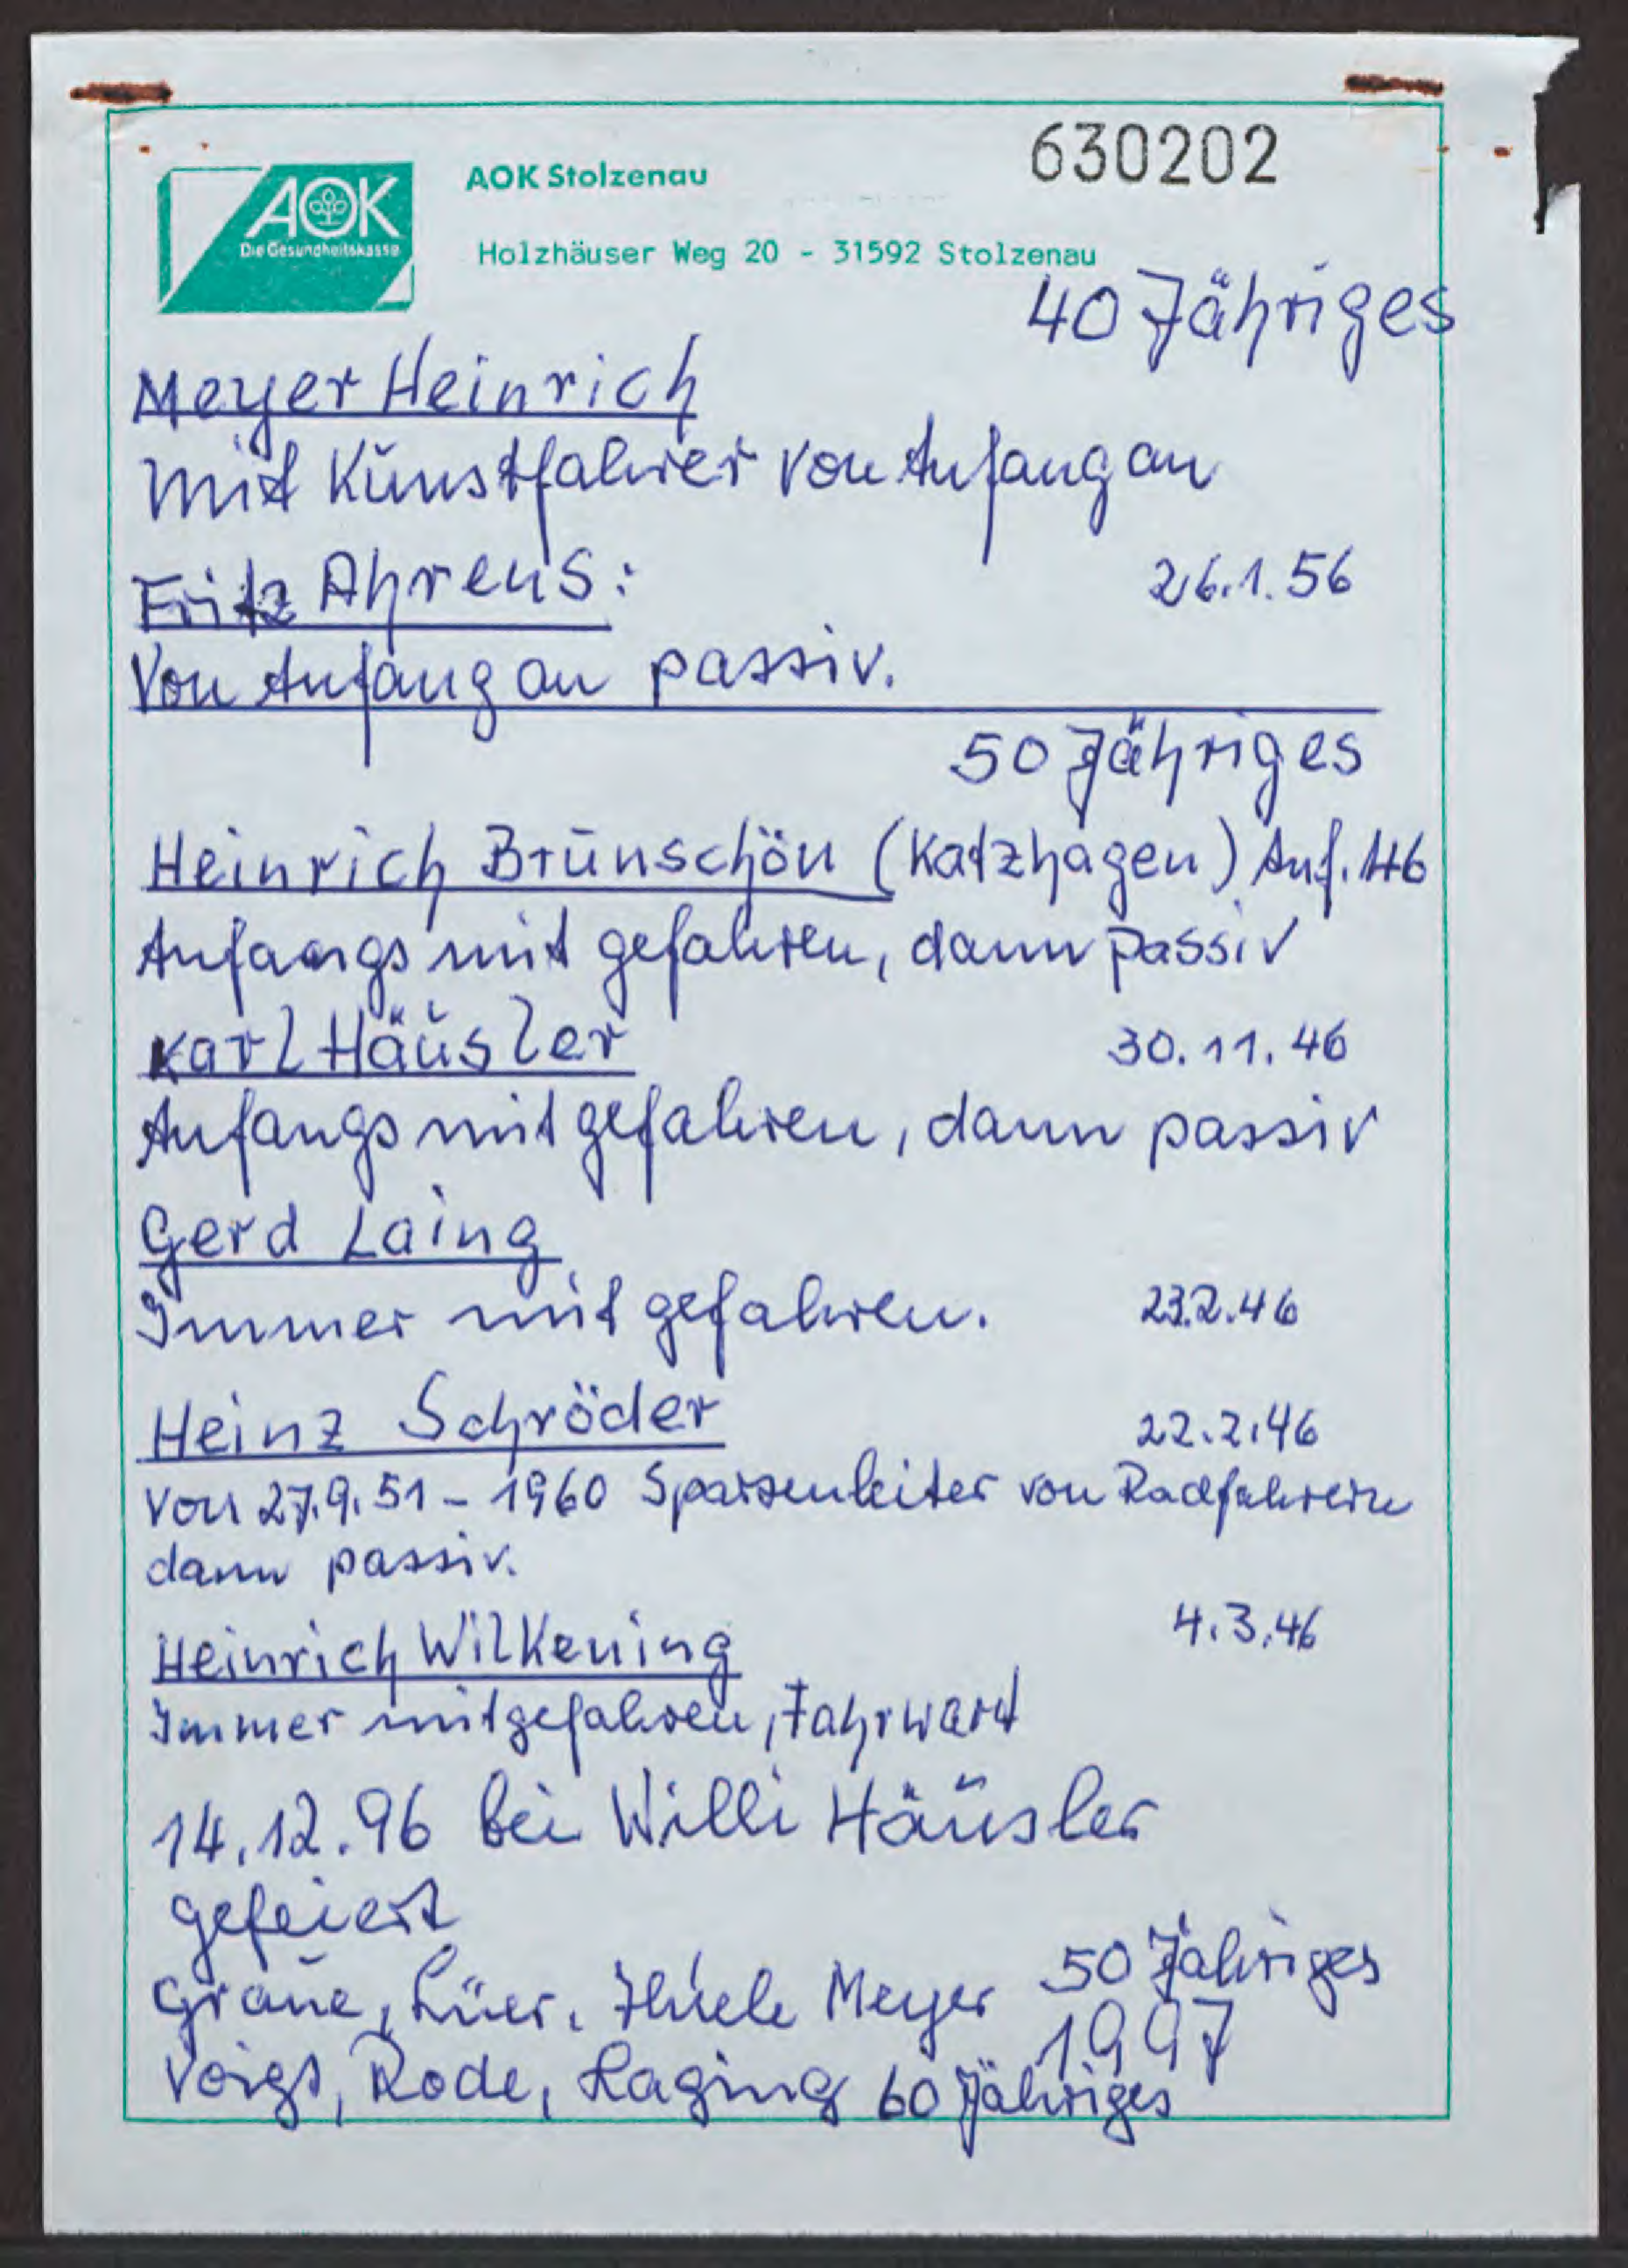 630202
AOK
Die Gesundheitskasse
AOK Stolzenau
Holzhäuser Weg 20 - 31592 Stolzenau
40 Jähriges
Meyer Heinrich
mit Kunstfahrer von Anfang an
Fritz Ahrens:
26.1.56
Von Anfang an passiv.
50 Jähriges
Heinrich Brünschön (Katzhagen) Anf. 46
Anfangs mit gefahren, dann passiv
Karl Häusler
30.11.46
Anfangs mit gefahren, dann passiv
Gerd Laing
Immer mit gefahren.
23.2.46
Heinz Schröder
22.2.46
Von 27.9.51 - 1960 Spartenleiter von Radfahrern
dann passiv.
Heinrich Wilkening
4.3.46
Immer mitgefahren, Fahrwart
14.12.96 bei Willi Häusler
gefeiert
Graue, Lüer, Thiele Meyer 50 Jähriges
1997
Voigt, Rode, Laging 60 Jähriges